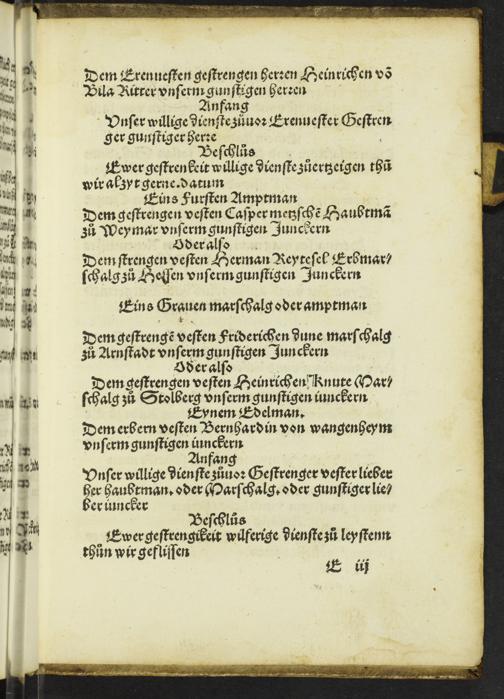 Dem Erenuesten gestrengen herren Heinrichen vō
Bila Ritter vnserm gunstigen herren
Anfang
Vnser willige dienste zůuor Erenuester Gestren
ger gunstiger herre
Beschlůs
Ewer gestrenkeit willige dienste zůertzeigen thů
wir alzyt gerne. datum
Eins Fursten Amptman
Dem gestrengen vesten Casper metzschē Haubtmā
zů Weymar vnserm gunstigen Junckern
Oder also
Dem strengen vesten Herman Reytesel Erbmar/
schalg zů Hessen vnserm gunstigen Junckern
Eins Grauen marschalg oder amptman
Dem gestrengē vesten Friderichen dune marschalg
zů Arnstadt vnserm gunstigen Junckern
Oder also
Dem gestrengen vesten Heinrichen Knute Mar/
schalg zů Stolberg vnserm gunstigen iunckern
Eynem Edelman.
Dem erbern vesten Bernhardin von wangenheym
vnserm gunstigen iunckern
Anfang
Vnser willige dienste zůuor Gestrenger vester lieber
her haubtman. oder Marschalg. oder gunstiger lie/
ber iuncker
Beschlůs
Ewer gestrengikeit wilferige dienste zů leystenn
thůn wir geflissen
E iij